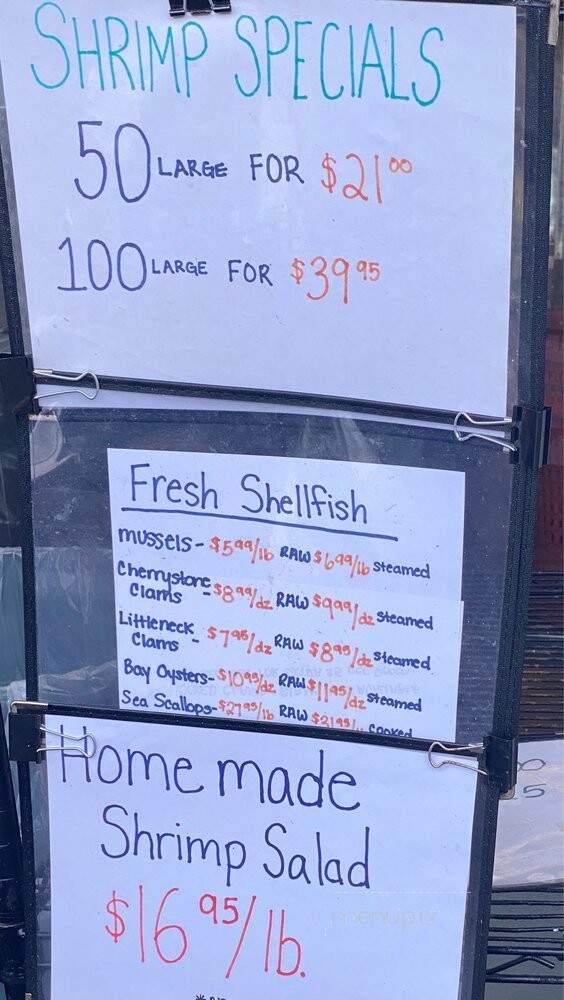 SHRIMP SPECIALS
50 LARGE FOR $21.00
100 LARGE FOR $39.95
Fresh Shellfish
mussels - $5.99/lb RAW $6.99/lb steamed
Cherrystone Clams $8.99/dz RAW $9.99/dz steamed
Littleneck Clams - $7.95/dz RAW $8.95/dz steamed
Bay Oysters - $10.95/dz RAW $11.95/dz steamed
Sea Scallops - $27.95/lb RAW $31.95/ cooked
Home made
Shrimp Salad
$16.95/lb.
menupix